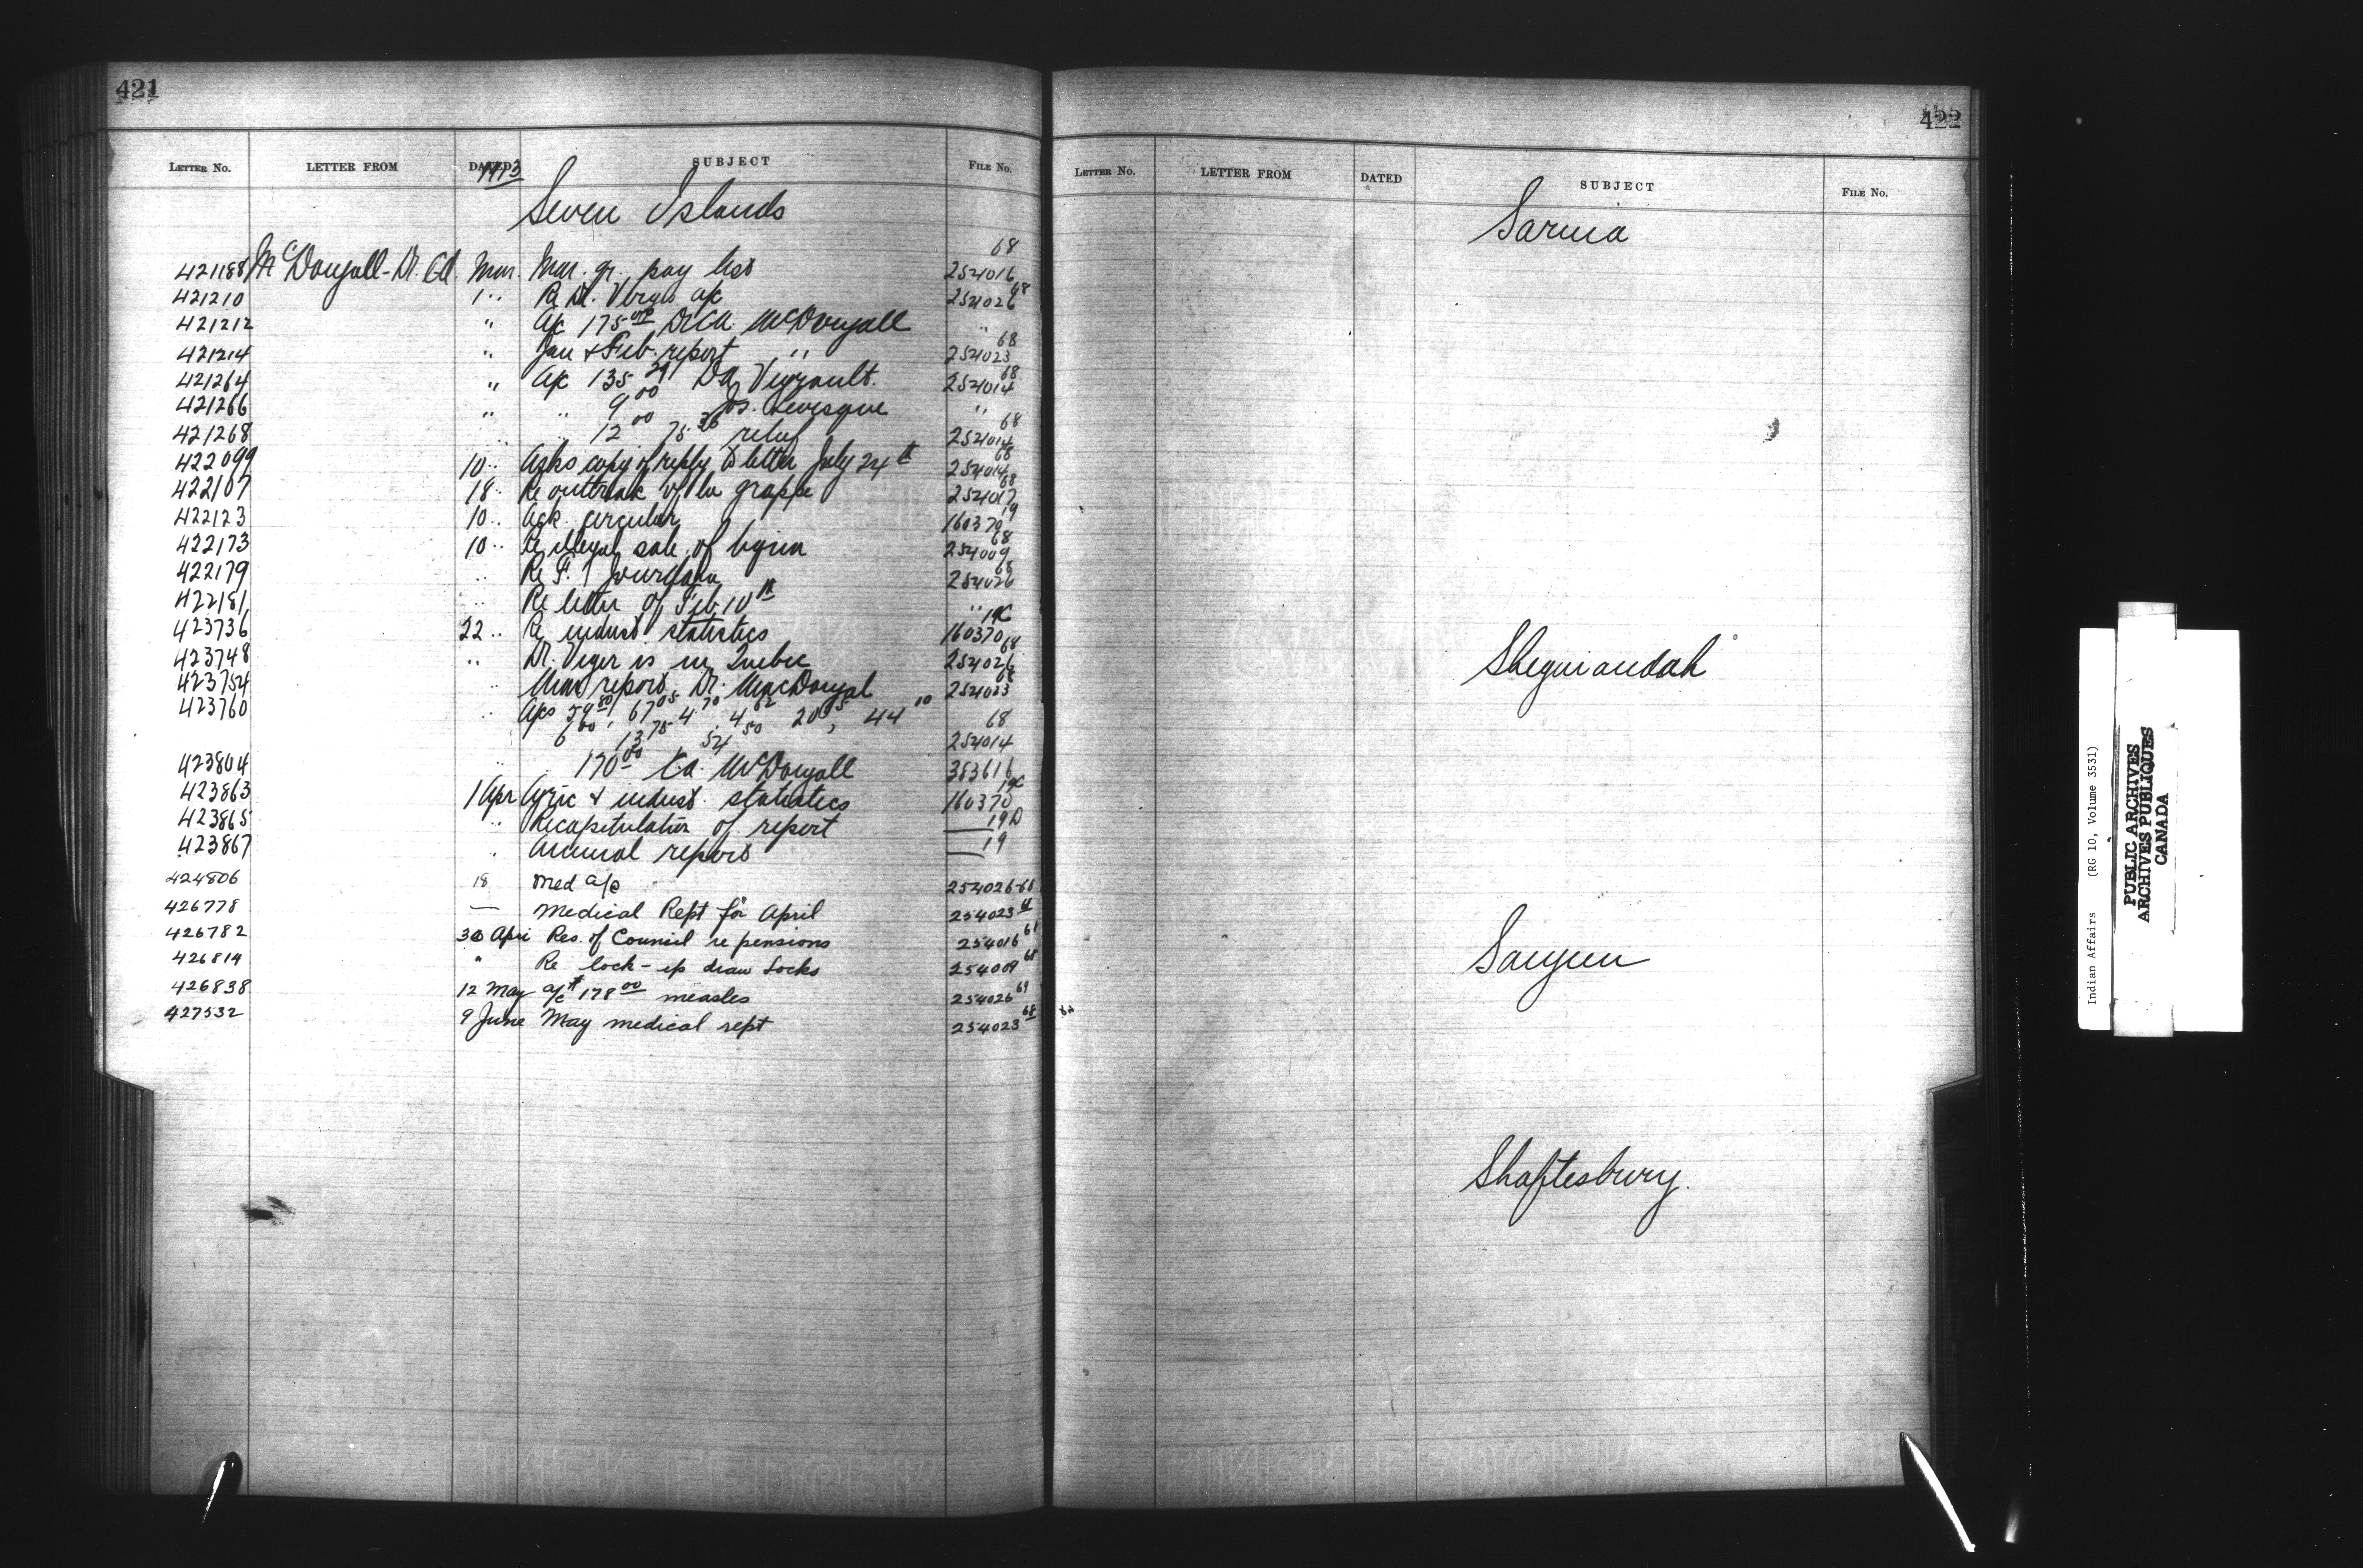 421
LETTER No. LETTER FROM DATED SUBJECT FILE No.
1913
Seven Islands
421188 McDougall - Dr. Ed. Mar. Mar. qr. pay list 254016 68
421210 1 " Re Dr. a/c 254026 68
421212 " a/c 175.00 McDougall "
421214 " Jan & Feb. report " 254023 68
421264 " a/c 135 DA Vigneault. 254014 68
421266 " " 9.00 Jos. Levesque "
421268 " 12.00 75.36 relief 254014 68
422099 10 " Asks copy of reply to letter July 24th 254014 68
422107 18 " Re outbreak of la grappe 254017 68
422123 10 " Ack. circular 160370 19
422173 10 " Re illegal sale of liquor 254009 68
422179 " Re F. 254026 68
422181 " Re letter of Feb. 10th "
423736 22 " Re indust. statistics 160370 19C
423748 " Dr. Viger is in Quebec 254026 68
423754 " Mar report Dr. MacDougal 254023 68
423760 " A/cs 67.05 4.70 4.62 44.00
6.00 13.75 54.50 254014 68
423804 " 170.00 McDougall 383616
423863 1 Apr Agric & indust. statistics 160370 19C
423865 " Recapitulation of report — 19D
423867 " Annual report — 19
424806 18 Med a/c 254026-68
426778 — Medical Rept for April 254023 68
426782 30 Apri Res. of Council re pensions 254016 68
426814 " Re lock-up draw locks 254009 68
426838 12 May a/c $178.00 measles 254026
427532 9 June May medical rept 254023 68
422
LETTER No. LETTER FROM DATED SUBJECT FILE No.
Sarnia
Sheguiandah
Saugeen
Shaftesbury.
Indian Affairs (RG 10, Volume 3531)
PUBLIC ARCHIVES
ARCHIVES PUBLIQUES
CANADA